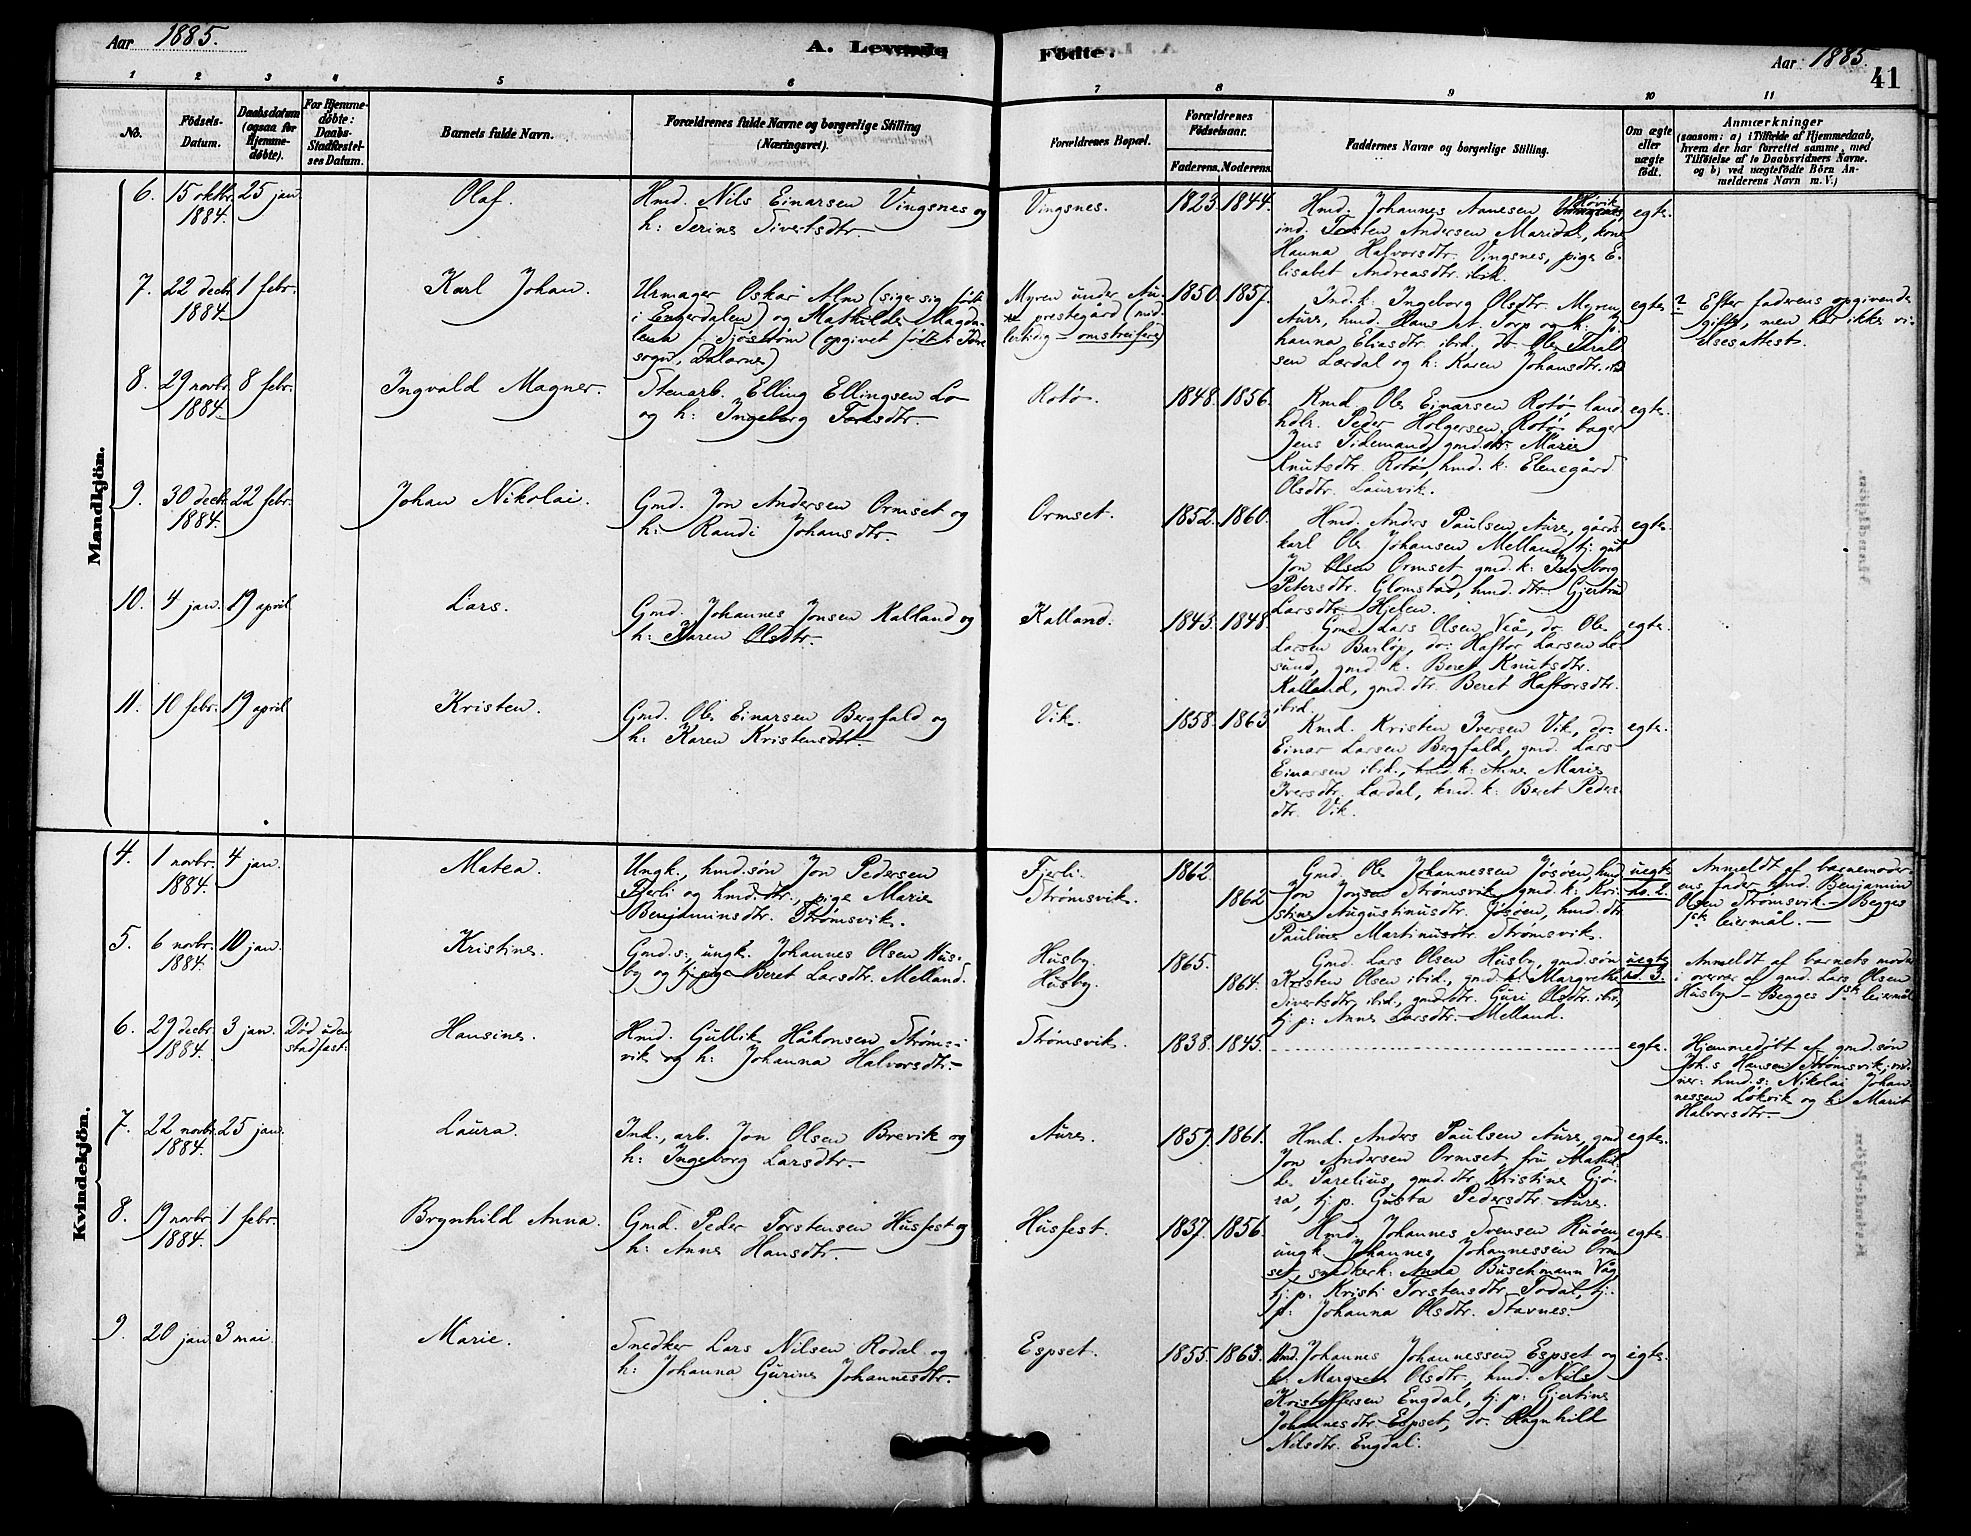 Aar 1885.
A. Levende
Födte.
Aar 1885.
41
1 2 3 4 5 6 7 8 9 10 11
No.
Födsels-Datum.
Daabsdatum (ogsaa for Hjemme-döbte).
For Hjemme-döbte: Daabs-Stadfæstel-ses Datum.
Barnets fulde Navn.
Forældrenes fulde Navne og borgerlige Stilling (Næringsvei).
Forældrenes Bopæl.
Forældrenes Födselsaar.
Faderens. Moderens.
Faddernes Navne og borgerlige Stilling.
Om ægte eller uægte födt.
Anmærkninger
(saasom: a) i Tilfælde af Hjemmedaab,
hvem der har forrettet samme, med
Tilföielse af to Daabsvidners Navne.
og b) ved uægtefödte Börn An-
melderens Navn m. V.)
Mandkjön.
6. 15 oktbr. 1884. 25 jan. Olaf.
Hmd. Nils Einarsen Vingsnes og
h: Serine Sivertsdtr.
Vingsnes. 1823. 1844.
Hmd. Johannes Arnesen Høvik
ind. Torsten Andersen Maridal, kone
Hanna Halvorsdtr. Vingsnes, pige E-
lisabet Andreasdtr. ibid.
egte.
7. 22 decbr. 1884. 1 febr. Karl Johan.
Urmager Oskar Alm (siger sig født
i Engerdalen) og Mathilde Magda-
lena f. Sjøstrøm (opgivet født i Idre
sogn, Dalarne)
Myren under Au-
re prestegård (mid-
lertidig - omstreifere)
1850. 1857.
Ind. k: Ingeborg Olsdtr. Myren
Aure, hmd. Hans A. Torp og k: Jo-
hanna Eliasdtr. ibid. do Ole
sen Lærdal og h: Karen Johansdtr. ibid
egte ?
Efter faderens opgivende
gifte, men har ikke vi-
elsesattest.
8. 29 novbr. 1884. 8 febr. Ingvald Magner.
Stenarb. Elling Ellingsen Lo
og h: Ingeborg Toresdtr.
Rotø. 1848. 1856.
Kmd. Ole Einarsen Rotø, land-
hdlr. Peder Holgersen Rotø, bager
Jens Tidemand, gmd.dtr: Marie
Knutsdtr. Rotø, hmd. k: Elenegård
Olsdtr. Laurvik.
egte.
9. 30 decbr. 1884. 22 febr. Johan Nikolai.
Gmd. Jon Andersen Ormset og
h: Randi Johansdtr.
Ormset. 1852. 1860.
Hmd. Anders Paulsen Aure, gårds-
karl Ole Johansen Melland, tj. gut
Jon Olsen Ormset, gmd. k: Ingeborg
Petersdtr. Glomstad, hmd. dtr. Gjertrud
Larsdtr. Hjelen.
egte.
10. 4 jan. 19 april Lars.
Gmd. Johannes Jonsen Kalland og
h: Karen Olsdtr.
Kalland. 1843. 1848.
Gmd. Lars Olsen Veiå, do. Ole
Larsen Barløp, do: Haftor Larsen Le-
sund, gmd k. Beret Knutsdtr.
Kalland, gmd. dtr. Beret Haftorsdtr.
ibid.
egte.
11. 10 febr. 19 april Kristen.
Gmd. Ole Einarsen Bergfald og
h: Karen Kristensdtr.
Vik. 1858. 1863
Kmd. Kristen Iversen Vik, do.
Einar Larsen Bergfald, gmd. Lars
Einarsen ibid., hmd. k: Anne Marie
Iversdtr. Lærdal, kmd. k: Beret Peders-
dtr. Vik.
egte.
Kvindekjön.
4. 1 novbr. 1884. 4 jan. Matea.
Ungk., hmd. søn Jon Pedersen
Fjerli og hmd. dtr., pige Marie
Benjaminsdtr. Strømsvik.
Fjerli. 1862.
Strømsvik. 1862
Gmd. Ole Johannessen Jøsøen, hmd
Jon Jonsen Strømsvik, gmd. k: Kri-
stine Augustinusdtr. Jøsøen, hmd. dtr.
Pauline Martinusdtr. Strømsvik.
uegte no. 2.
Anmeldt af barnemoder-
ens fader hmd. Benjamin
Olsen Strømsvik. - Begges
1ste leiermål. -
5. 6 novbr. 1884. 10 jan. Kristine.
Gmd. s., ungk. Johannes Olsen Hus-
by og tj. pige Beret Larsdtr. Melland.
Husby. 1865.
Husby. 1864.
Gmd. Lars Olsen Husby, gmd. søn
Kristen Olsen ibid., gmd. k: Margrethe
Sivertsdtr. ibid., gmd. dtr. Guri Olsdtr. ibid.,
tj. p: Anne Larsdtr. Melland.
uegte no. 3.
Anmeldt af barnets moder
i overvær af gmd. Lars Olsen
Husby - Begges 1ste leiermål
6. 29 decbr. 1884. 3 jan. Død uden stadfæst: Hansine.
Hmd. Gullik Håkonsen Strøms-
vik og h: Johanna Halvorsdtr.
Strømsvik. 1838. 1845. egte.
Hjemmedøbt af gmd. søn
Joh.s Hansen Strømsvik; vid-
ner: hmd. s: Nikolai Johan-
nessen Løkvik og k: Marit
Halvorsdtr.
7. 22 novbr. 1884. 25 jan. Laura.
Ind., arb. Jon Olsen Brevik og
h: Ingeborg Larsdtr.
Aure. 1857. 1861.
Hmd. Anders Paulsen Aure, gmd
Jon Andersen Ormset, fru Mathil-
de Parelius, gmd. dtr. Kristine Gjø-
ra, tj. p. Gusta Pedersdtr. Aure.
egte.
8. 19 novbr. 1884. 1 febr. Brynhild Anna.
Gmd. Peder Torstensen Husfest og
h: Anne Hansdtr.
Husfest. 1837. 1856.
Hmd. Johannes Svensen Ruøen,
ungk. Johannes Johannessen Orm-
set, snedker k: Anna Buschmann Våg,
tj. p: Kristi Torstensdtr. Todal, tj.
p: Johanna Olsdtr. Stavnes.
egte.
9. 20 jan 3 mai. Marie.
Snedker Lars Nilsen Rodal og
h: Johanna Gurine Johannesdtr.
Espset. 1855. 1863.
Hmd. Johannes Johannessen Espset og
k: Margrete Olsdtr, hmd. Nils
Kristoffersen Engdal, tj. p: Gjertine
Johannesdtr Espset, do. Ragnhild
Nilsdtr. Engdal.
egte.